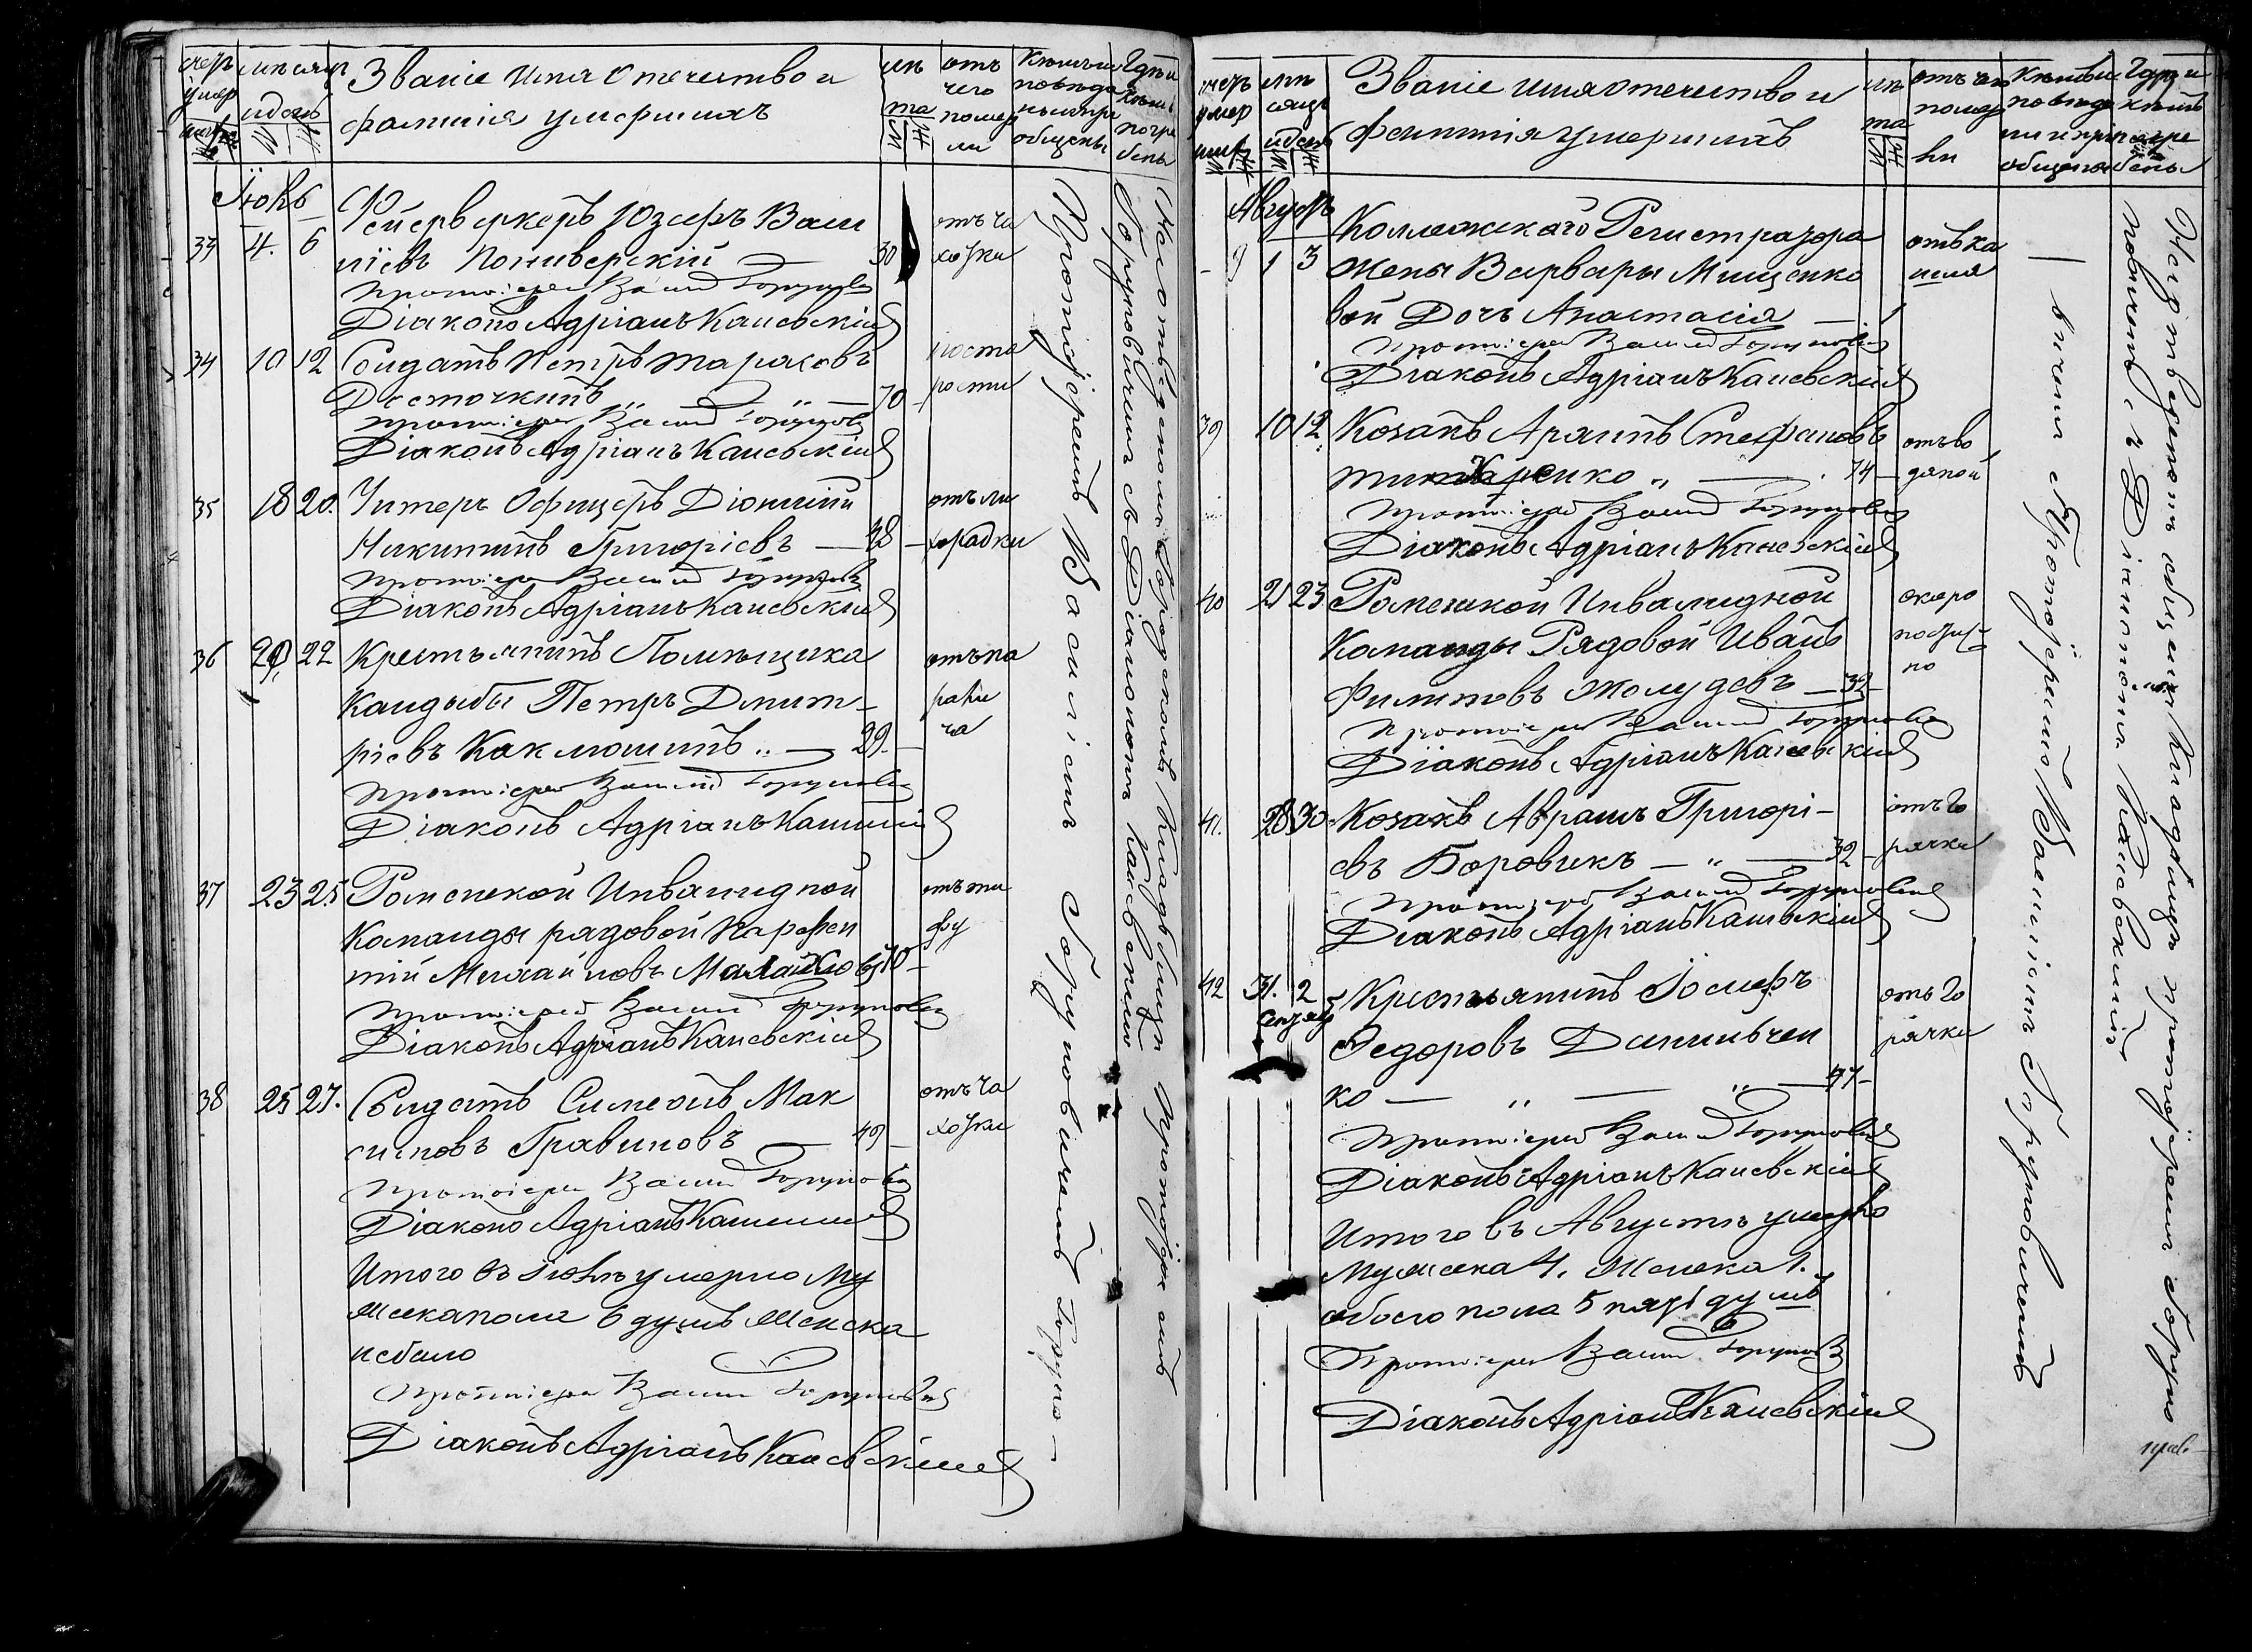 Званіе имя отечество и
фамилія умершихъ
мѣсяцъ
и день
лѣ
та
отъ
чего
помер
ли
общены
погре
бены
Іюль
33 4. 6
Фейерверкеръ Юзефъ Васи
ліевъ 30
отъ ча
хотки
Протоіерей Василій Горуновичъ
Діаконъ Адріанъ Каневскій
34 10 12 Солдатъ Петръ Тарасовъ
70
отъ ста
рости
Протоіерей Василій Горуновичъ
Діаконъ Адріанъ Каневскій
35 18 20. Унтеръ Офицеръ Діонисій
Никитинъ Григоріевъ — 48
отъ ли
хорадки
Протоіерей Василій Горуновичъ
Діаконъ Адріанъ Каневскій
36 20. 22 Крестьянинъ Помѣщика
Кандыбы Петръ Дмит-
ріевъ Коклюшинъ — 29.
отъ па
рали
ча
Протоіерей Василій Горуновичъ
Діаконъ Адріанъ Каневскій
37 23 25. Роменской Инвалидной
Команды рядовой Парфен
тій Михайловъ
отъ ти
фу
Протоіерей Василій Горуновичъ
Діаконъ Адріанъ Каневскій
38 25 27. Солдатъ Симеонъ Мак
симовъ Гравиновъ — 49
отъ ча
хотки
Протоіерей Василій Горуновичъ
Діаконъ Адріанъ Каневскій
Итого въ Іюлѣ умерло му
жеска пола 6 душъ Женска
небыло
Протоіерей Василій Горуновичъ
Діаконъ Адріанъ Каневскій
Протоіереемъ Василіемъ Горуновичемъ
Горуновичемъ съ Діакономъ Каневскимъ
На отведенномъ городскомъ кладбищи Протоіереемъ
Званіе имя отечество и
фамилія умершихъ
Августъ
1 3
Коллежскаго Регистратора
Жены Варвары Мищенко
вой Дочь Анастасія — 1
отъ ка
шля
Протоіерей Василій Горуновичъ
Діаконъ Адріанъ Каневскій
39 10 12 Козакъ Стефановъ
74
отъ во
дяной
Протоіерей Василій Горуновичъ
Діаконъ Адріанъ Каневскій
40 21 23 Роменской Инвалидной
Команды Рядовой Иванъ
Филиповъ Жолудевъ — 32
скоро
постиж-
но
Протоіерей Василій Горуновичъ
Діаконъ Адріанъ Каневскій
41. 28 30. Козакъ Авраамъ Григорі-
евъ Боровикъ — 32
отъ го
рячки
Протоіерей Василій Горуновичъ
Діаконъ Адріанъ Каневскій
42 31. 2 Крестьянинъ Іосифъ
Федоровъ Данильчен
ко — 47
отъ го
рячки
Протоіерей Василій Горуновичъ
Діаконъ Адріанъ Каневскій
Итого въ Августѣ умерло
Мужеска 4. Женска 1.
обоего пола 5 пять душъ
Протоіерей Василій Горуновичъ
Діаконъ Адріанъ Каневскій
Протоіереемъ Василіемъ Горуновичемъ
новичемъ съ Діакономъ Каневскимъ
На отведенномъ кладбищѣ протоіереемъ Горуно